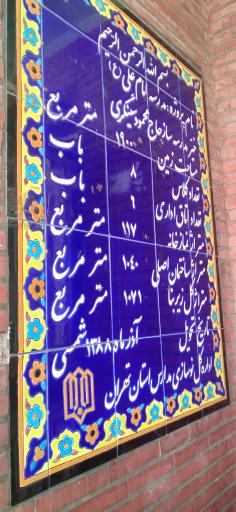 بسم الله الرحمن الرحیم
نام پروژه: مدرسه امام علی (ع)
خیر مدرسه ساز حاج محمود عسکری
مساحت زمین ۱۹۰۰ متر مربع
تعداد کلاس ۸ باب
تعداد اتاق اداری ۶ باب
متراژ نمازخانه ۱۱۷ متر مربع
متراژ ساختمان اصلی ۱۰۴۰ متر مربع
متراژ کل زیربنا ۱۰۷۱ متر مربع
تاریخ تحویل آذرماه ۱۳۸۸ شمسی
اداره کل نوسازی مدارس استان تهران